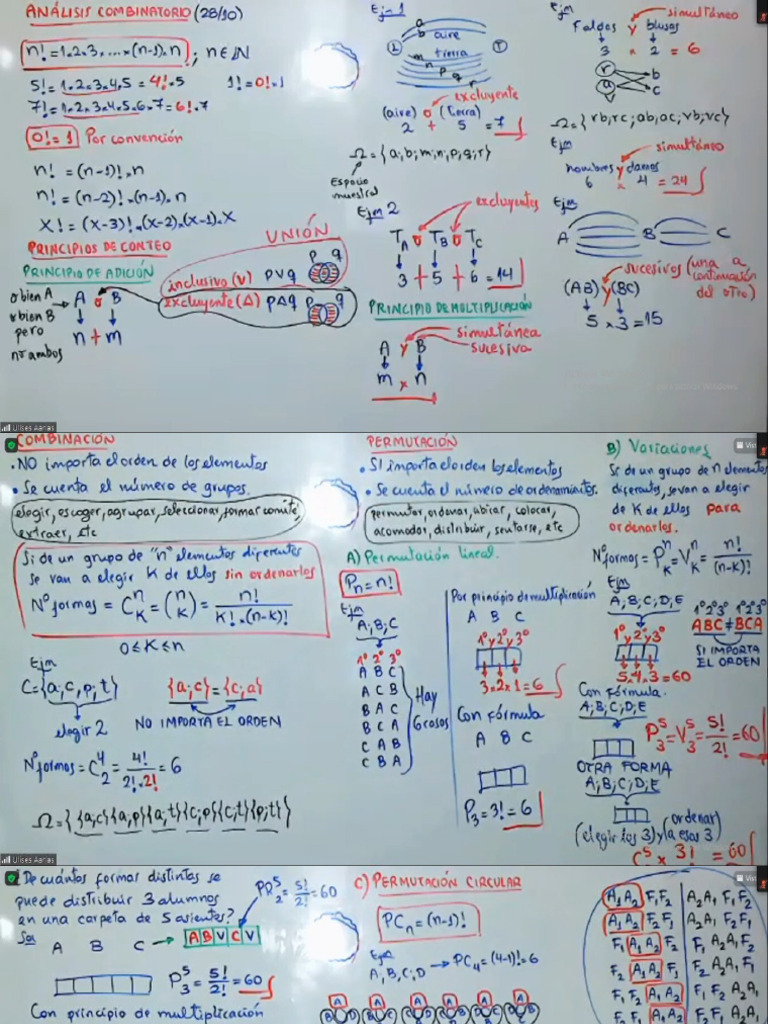 ANÁLISIS COMBINATORIO (28/10)
n! = 1.2.3. ... .(n-1).n ; n∈ℕ
5! = 1.2.3.4.5 = 4!.5
1! = 0!.1
7! = 1.2.3.4.5.6.7 = 6!.7
0! = 1 Por convención
n! = (n-1)!.n
n! = (n-2)!.(n-1).n
x! = (x-3)!.(x-2).(x-1).x
PRINCIPIOS DE CONTEO
PRINCIPIO DE ADICIÓN
o bien A
o bien B
pero
no ambos
A o B
n + m
UNIÓN
inclusivo (∨) p∨q
p q
excluyente (Δ) pΔq
p q
Ejm 1
a
b aire
L T
m tierra
n p q r
excluyente
(aire) o (tierra)
2 + 5 = 7
Ω = {a;b;m;n;p;q;r}
Espacio
muestral
Ejm 2
excluyentes
TA o TB o TC
3 + 5 + 6 = 14
PRINCIPIO DE MULTIPLICACIÓN
simultánea
A y B
sucesiva
m x n
Ejm
simultáneo
Faldas y blusas
3 x 2 = 6
r b
a c
v
Ω = {rb;rc;ab;ac;vb;vc}
Ejm
simultáneo
hombres y damas
6 x 4 = 24
Ejm
A B C
sucesivos (una a
continuación
del otro)
(AB) y (BC)
5 x 3 = 15
Ulises Aarias
COMBINACIÓN
• NO importa el orden de los elementos
• Se cuenta el número de grupos.
elegir, escoger, agrupar, seleccionar, formar comité,
extraer, etc
Si de un grupo de "n" elementos diferentes
se van a elegir K de ellos sin ordenarlos
Nº formas = C n K = (n K) = n! / K!.(n-k)!
0≤K≤n
Ejm
C={a,c,p,t}
elegir 2
{a;c} = {c,a}
NO IMPORTA EL ORDEN
Nº formas = C 4 2 = 4! / 2!.2! = 6
Ω = {{a;c}{a,p}{a;t}{c;p}{c;t}{p;t}}
Ulises Aarias
PERMUTACIÓN
• SI importa el orden los elementos
• Se cuenta el número de ordenamientos.
permutar, ordenar, ubicar, colocar,
acomodar, distribuir, sentarse, etc
A) Permutación lineal.
Pn = n!
Ejm
A;B;C
1º 2º 3º
A B C
A C B
B A C
B C A
C A B
C B A
Hay
6 casos
Por principio de multiplicación
A B C
1º y 2º y 3º
3 x 2 x 1 = 6
Con fórmula
A B C
P3 = 3! = 6
B) Variaciones
Si de un grupo de n elementos
diferentes, se van a elegir
de K de ellos para
ordenarlos.
Nº formas = P n K = V n K = n! / (n-k)!
Ejm
A;B;C;D;E
1º y 2º y 3º
5 x 4 x 3 = 60
1º2º3º 1º2º3º
ABC ≠ BCA
SI IMPORTA
EL ORDEN
Con fórmula.
A;B;C;D;E
P 5 3 = V 5 3 = 5! / 2! = 60
OTRA FORMA
A;B;C;D;E
(elegir los 3) y (ordenar a esos 3)
C 5 3 x 3! = 60
¿De cuántas formas distintas se
puede distribuir 3 alumnos
en una carpeta de 5 asientos?
PR 5 2 = 5! / 2! = 60
Sol
A B C → A B V C V
P 5 3 = 5! / 2! = 60
Con principio de multiplicación
C) PERMUTACIÓN CIRCULAR
PCn = (n-1)!
Ejm
A,B,C,D → PC4 = (4-1)! = 6
A A A A A A
A1 A2 F1 F2
A1 A2 F2 F1
F1 A1 A2 F2
F2 A1 A2 F1
F1 F2 A1 A2
A2 A1 F1 F2
A2 A1 F2 F1
F1 A2 A1 F2
F2 A2 A1 F1
F1 F2 A2 A1